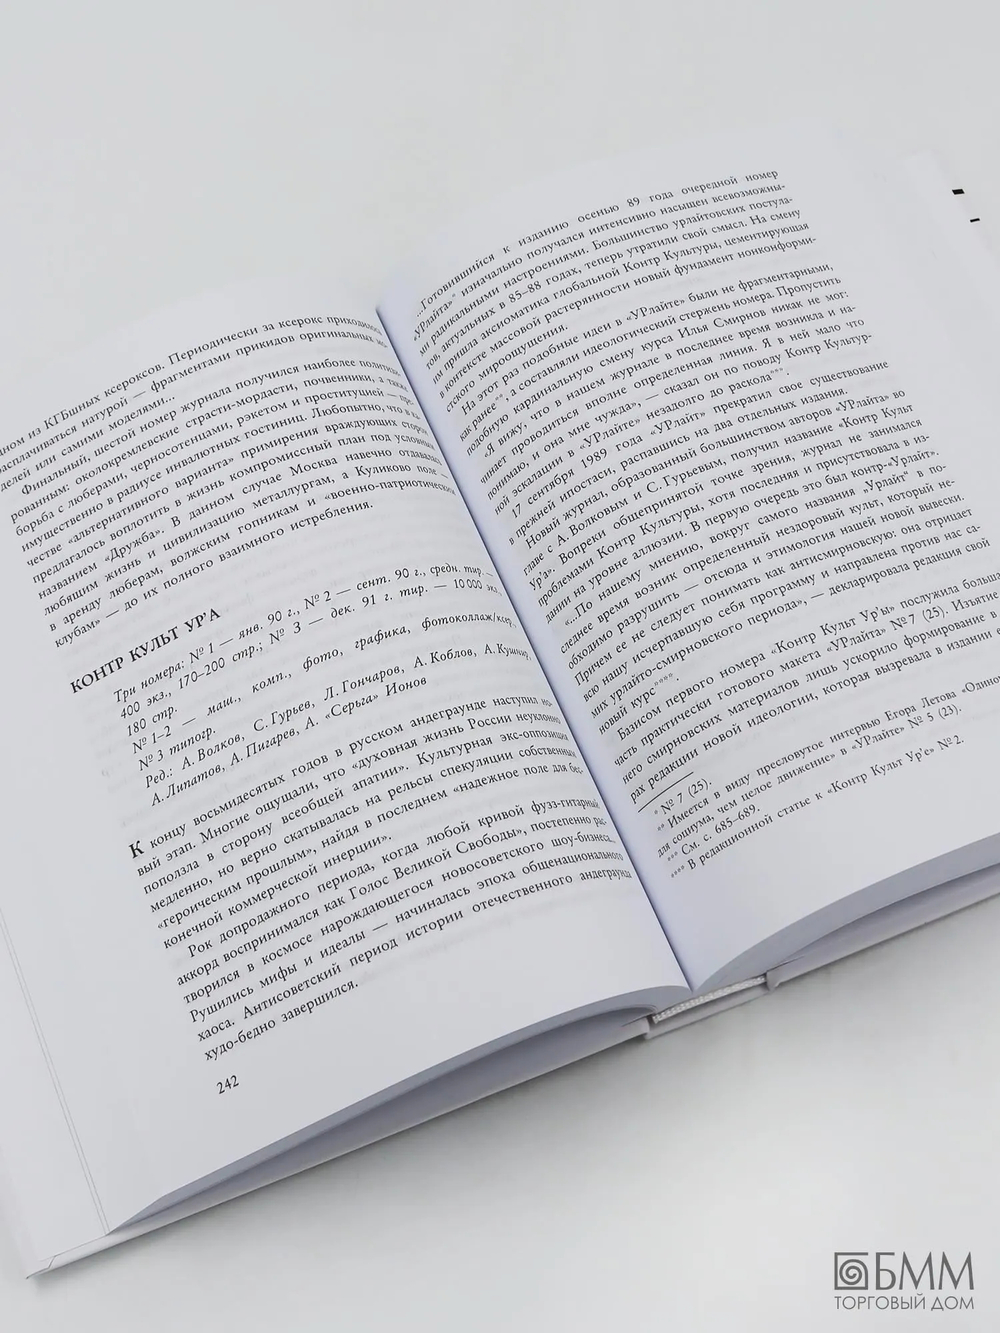 ном из КГБшных ксероксов. Периодически за ксерокс приходилось
расплачиваться натурой — фрагментами прикидов оригинальных мо-
делей или самими моделями...
Финальный, шестой номер журнала получился наиболее политизи-
рованным: околокремлевские страсти-мордасти, почвенники, а также
борьба с люберами, черносотенцами, рэкетом и проституцией —
имущественно в радиусе инвалютных гостиниц. Любопытно, что в ка-
честве «альтернативного варианта» примирения враждующих сторон
предлагалось воплотить в жизнь компромиссный план под условным
названием «Дружба». В данном случае Москва навечно отдавалась
любящим жизнь и цивилизацию металлургам, а Куликово поле —
в аренду люберам, волжским гопникам и «военно-патриотическим
клубам» — до их полного взаимного истребления.
КОНТР КУЛЬТ УР'А
Три номера: № 1 — янв. 90 г., № 2 — сент. 90 г., средн. тир. —
400 экз., 170–200 стр.; № 3 — дек. 91 г. тир. — 10 000 экз.,
180 стр.
№ 1–2 — маш., комп., фото, графика, фотоколлаж/ксер.
№ 3 типогр.
Ред.: А. Волков, С. Гурьев, Л. Гончаров, А. Коблов, А. Кушнир,
А. Липатов, А. Пигарев, А. «Серьга» Ионов
К концу восьмидесятых годов в русском андеграунде наступил но-
вый этап. Многие ощущали, что «духовная жизнь России неуклонно
поползла в сторону всеобщей апатии». Культурная экс-оппозиция
медленно, но верно скатывалась на рельсы спекуляции собственным
«героическим прошлым», найдя в последнем «надежное поле для бес-
конечной коммерческой инерции».
Рок допродажного периода, когда любой кривой фузз-гитарный
аккорд воспринимался как Голос Великой Свободы, постепенно рас-
творился в космосе нарождающегося новосоветского шоу-бизнеса...
Рушились мифы и идеалы — начиналась эпоха общенационального
хаоса. Антисоветский период истории отечественного андеграунда
худо-бедно завершился.
242
Готовившийся к изданию осенью 89 года очередной номер
«УРлайта»° изначально получался интенсивно насыщен всевозможны-
ми радикальными настроениями. Большинство урлайтовских постула-
тов, актуальных в 85–88 годах, теперь утратили свой смысл. На смену
им пришла аксиоматика глобальной Контр Культуры, цементирующая
в контексте массовой растерянности новый фундамент нонконформи-
стского мироощущения.
На этот раз подобные идеи в «УРлайте» были не фрагментарными,
как ранее°°, а составляли идеологический стержень номера. Пропустить
подобную кардинальную смену курса Илья Смирнов никак не мог:
«Я вижу, что в нашем журнале в последнее время возникла и на-
чинает проводиться вполне определенная линия. Я в ней мало что
понимаю, и она мне чужда», — сказал он по поводу Контр Культур-
ной эскалации в «УРлайте» незадолго до раскола°°°.
17 сентября 1989 года «УРлайт» прекратил свое существование
в прежней ипостаси, распавшись на два отдельных издания.
Новый журнал, образованный большинством авторов «УРлайта» во
главе с А. Волковым и С. Гурьевым, получил название «Контр Культ
Ур'а». Вопреки общепринятой точке зрения, журнал не занимался
проблемами Контр Культуры, хотя последняя и присутствовала в из-
дании на уровне аллюзии. В первую очередь это был контр-«Урлайт».
«...По нашему мнению, вокруг самого названия „Урлайт“ в по-
следнее время возник определенный нездоровый культ, который не-
обходимо разрушить — отсюда и этимология нашей новой вывески.
Причем ее не следует понимать как антисмирновскую: она отрицает
всю нашу исчерпавшую себя программу и направлена против нас са-
мих урлайто-смирновского периода», — декларировала редакция свой
новый курс°°°°.
Базисом первого номера «Контр Культ Ур'ы» послужила большая
часть практически готового макета «УРлайта» № 7 (25). Изъятие из
него смирновских материалов лишь ускорило формирование в
рах редакции новой идеологии, которая вызревала в издании в
° № 7 (25).
°° Имеется в виду пресловутое интервью Егора Летова «Одиночки
для социума, чем целое движение» в «УРлайте» № 5 (23).
°°° См. с. 685–689.
°°°° В редакционной статье к «Контр Культ Ур'е» № 2.
БММ
ТОРГОВЫЙ ДОМ